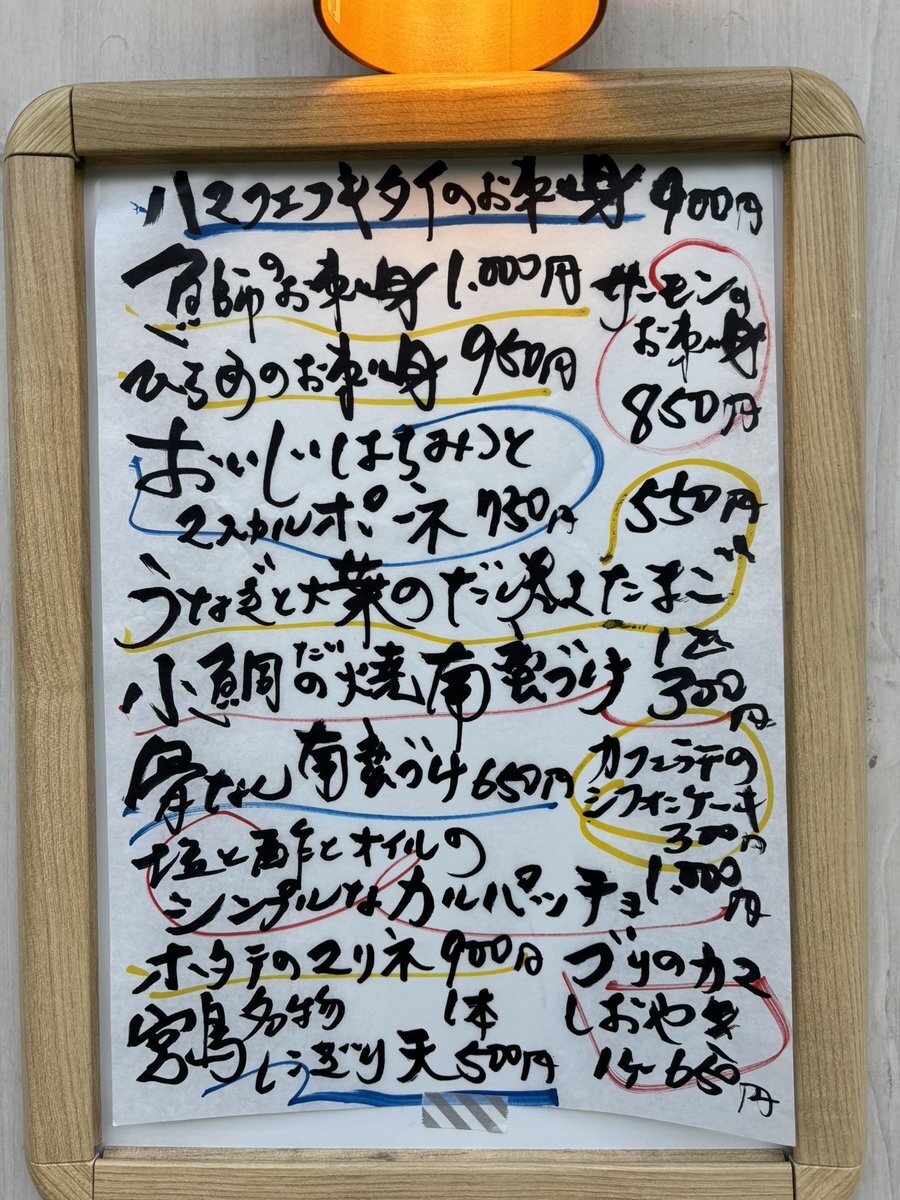 ハマフエフキダイのお刺身 900円
魚師のお刺身 1.000円
サーモンの
お刺身
850円
ひらめのお刺身 950円
おいしいはちみつと
マスカルポーネ 750円
うなぎと大葉のだし巻きたまご
550円
小鯛の南蛮づけ
1匹
300円
骨なし南蛮づけ 650円
カフェラテの
シフォンケーキ
300円
塩と酢とオイルの
シンプルなカルパッチョ 1.000円
ホタテのマリネ 900円
宮島名物
にぎり天
1本
500円
ブリのカマ
しおやき
1ケ 650円